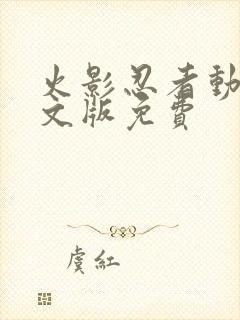 火影忍者動
文版免費
虞紅